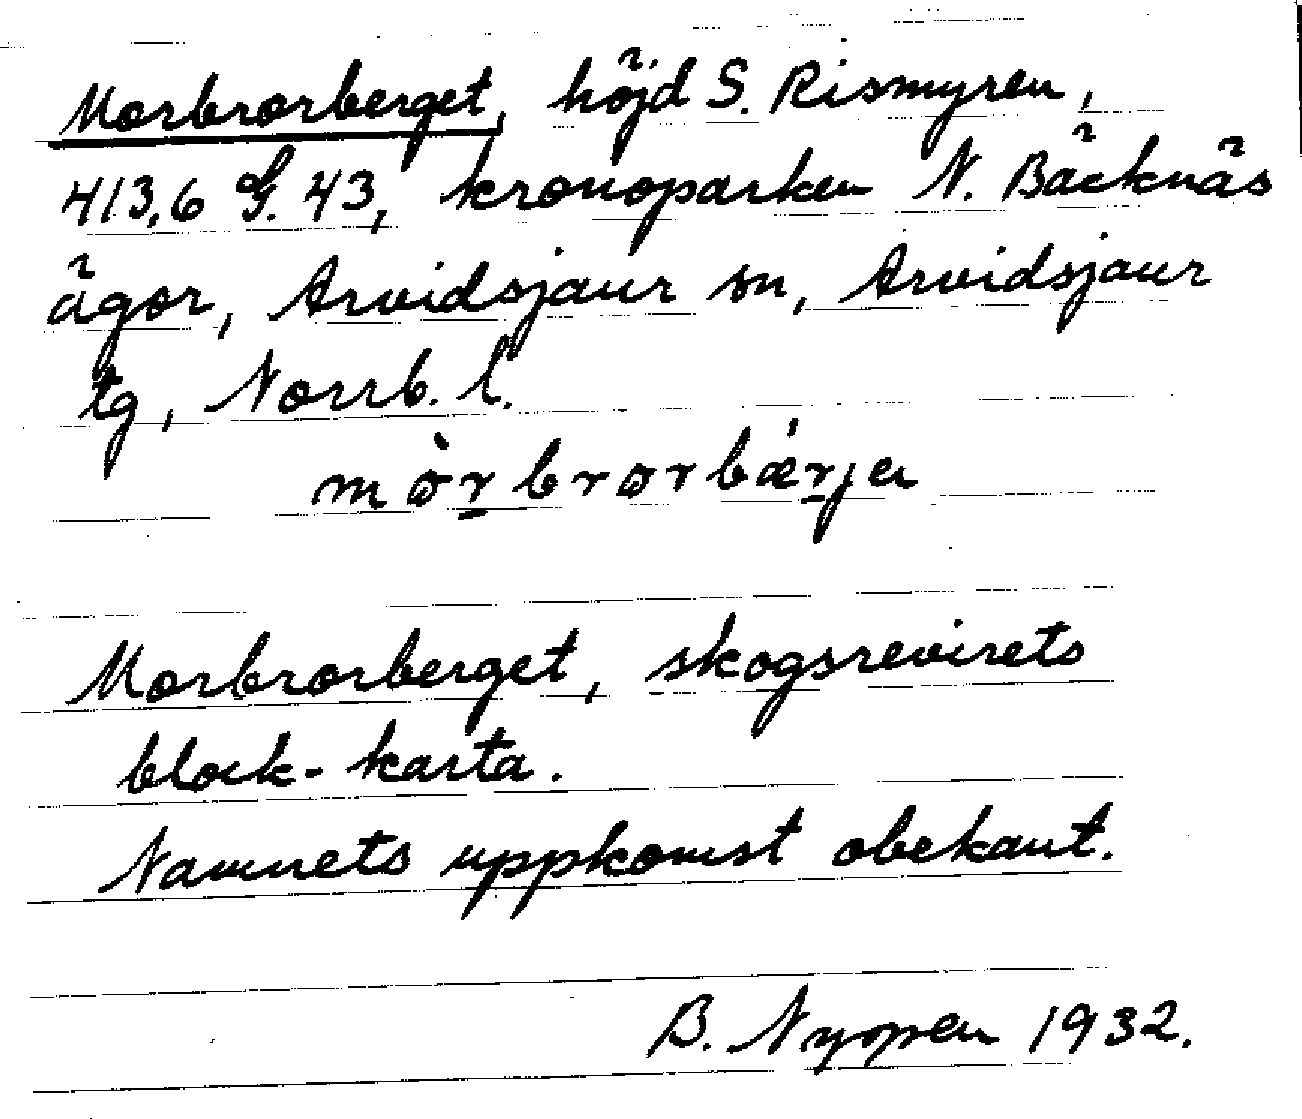 Morbrorberget, höjd S. Rismyren,
413,6 G. 43, kronoparken N. Bäcknäs
ägor, Arvidsjaur sn, Arvidsjaur
tg, Norrb. l.
mòrbrorbǽrjen
Morbrorberget, skogsrevirets
block-karta.
Namnets uppkomst obekant.
B. Nyopen 1932.